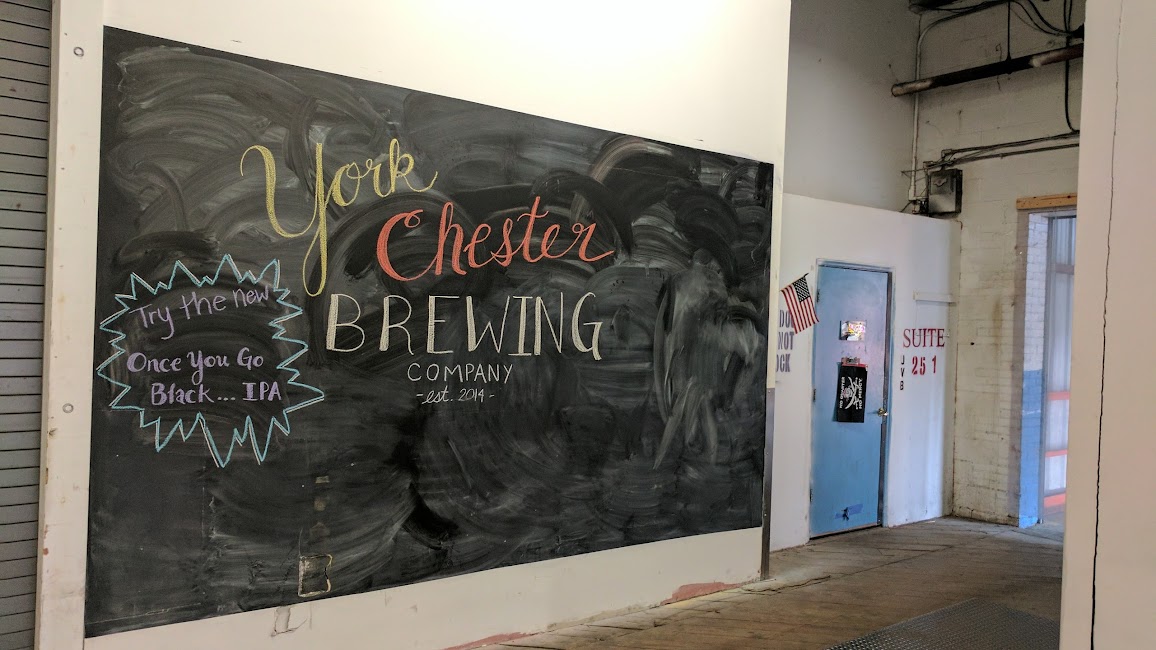 York
Chester
BREWING
COMPANY
-est. 2014-
Try the new
Once You Go
Black... IPA
NOT
SUITE
251
JVB